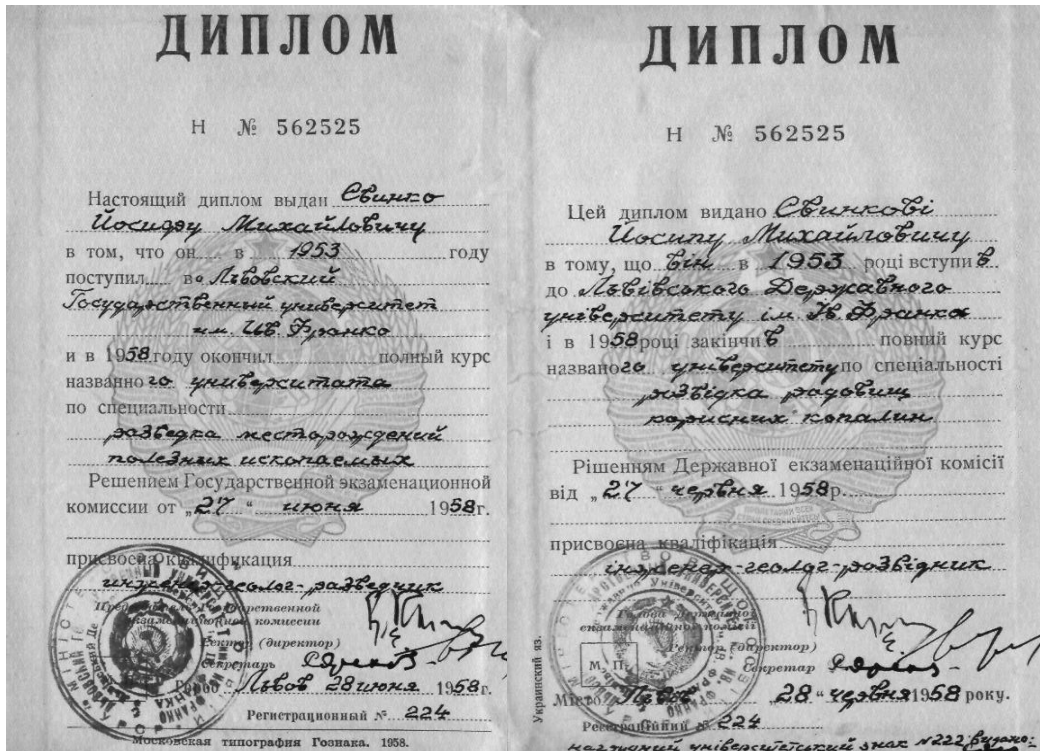 ДИПЛОМ
Н № 562525
Настоящий диплом выдан Свинко
Йосифу Михайловичу
в том, что он в 1953 году
поступил в о Львовский
Государственный университет
им. Ив. Франко
и в 1958 году окончил полный курс
названного университата
по специальности
разведка месторождений
полезних ископаемых
Решением Государственной экзаменационной
комиссии от „27“ июня 1958г.
присвоена квалификация
инженер-геолог-разведник
Председатель Государственной
экзаменационной комиссии
Ректор (директор)
Секретарь
Львов 28 июня 1958г.
Регистрационный № 224
Московская типография Гознака. 1958.
ДИПЛОМ
Н № 562525
Цей диплом видано Свинкові
Йосипу Михайловичу
в тому, що він в 1953 році вступив
до Львівського Державного
університету ім. Ів. Франка
і в 1958 році закінчив повний курс
названого університету по спеціальності
розвідка родовищ
корисних копалин
Рішенням Державної екзаменаційної комісії
від „27“ червня 1958р.
присвоєна кваліфікація
інженер-геолог-розвідник
Голова Державної
екзаменаційної комісії
Ректор (директор)
Секретар
М. П.
Місто Львів „28“ червня 1958 року.
Реєстраційний № 224
Украинский яз.
нагрудний університетський знак №222 видано: